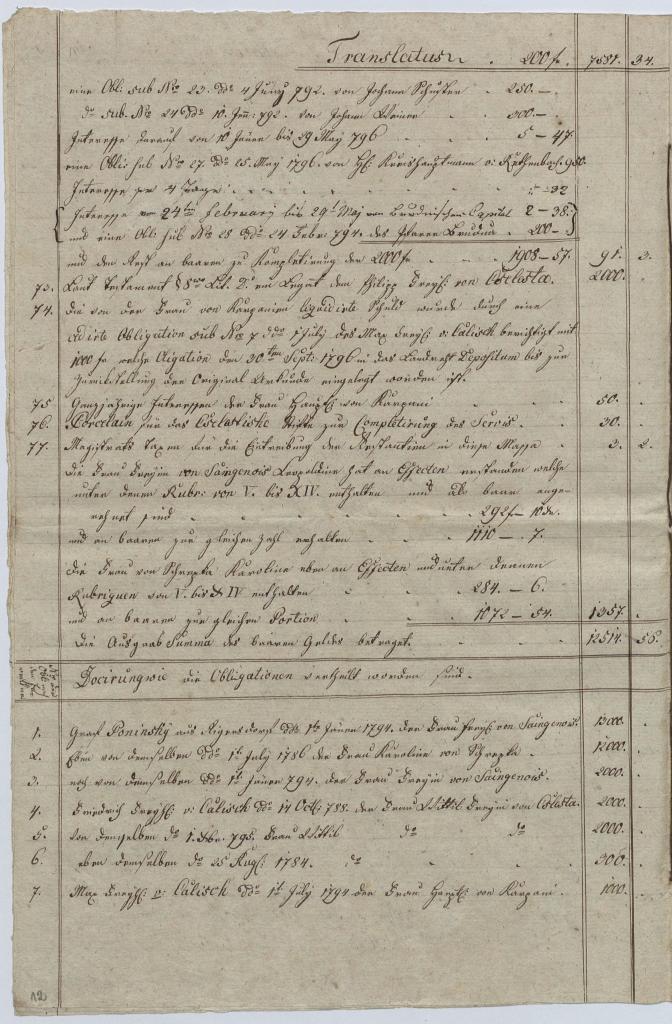 Translatum . 200 f. 7581. 34.
eine Obli: sub Nro 23. ddo 4 Juny 792. von Johann Schuster . 250.—.
do sub. No 24 ddo 10. Jen: 792. von Johann Weiner . 300.—.
Interesse darauf von 10 Jäner bis 29 May 796 . 5 – 47.
eine Obli: sub No 27. ddo 25. May 1796. von H: Kreishauptmann v: Rothenbach. 950.
Interesse per 4 Tage . . . . – 32
Interesse vom 24ten February bis 29t May von Capital 2 – 38.
und eine Obli: sub No 28 ddo 24 Febr: 794. des Pfarrer Brudna . 200 – .
und den Rest an baaren zu Kompletirung der 2000 fr . . 1908 – 57. 91. 3.
73. Laut Testament § 8vo Lit. D: ein Legat dem Philipp Freyh: von Cselesta. 2000.
74. die von der Frau von Karpanien liquidirte Schuld wurde durch eine
cedirte Obligation sub No 7 ddo 1t July des Max Freyh: v: Calisch berichtigt mit
1000 fr welche Obligation den 30ten Sept: 1796 in das Landrecht Depositum bis zur
Zurückstellung der Original Urkunde eingelegt worden ist.
75 Ganzjährige Interessen der Frau Haupt: von Karpani . . 50. .
76. Porcelain für das Cselestische Stifte zur Completirung des Servis. . 30. .
77. Magistrats Taxen für die Eintreibung der Restantien in diese Massa . 3. 2.
die Frau Freyin von Saingenois Leopoldine hat an Effecten erstanden welche
unter denen Rubr: von V. bis XIV. enthalten und als baar ange-
rechnet sind . . . . 292 f – 10 kr.
und an baaren zur gleichen Zahl erhalten . . 1110 – 7.
die Frau von Schrepka Karoline eben an Effecten und unter denen
Rubriquen von V. bis XIV enthalten . . 284. – 6.
und an baaren zur gleichen Portion . . 1072 – 54. 1357. .
die Ausgaab Summa des baaren Geldes betraget. . . 12514. 56.
Docirung wie die Obligationen vertheilt worden sind.
1. Graf Poninsky aus Aigersdorf ddo 1tn Jäner 1794. der Frau Freyh: von Saingenois. 13000. .
2. Eben von demselben ddo 1t July 1786 der Frau Karoline von Schrepka . 12000. .
3. noch von demselben ddo 1t Jäner 794. der Frau Freyin von Saingenois. 2000. .
4. Friedrich Freyh: v: Calisch ddo 14 Oct: 788. der Frau Freyin von Cselesta. 2000. .
5. von demselben do 1. 793. Frau do do 2000. .
6. eben demselben do 25 Aug: 1784. do . . 300. .
7. Max Freyh: v: Calisch ddo 1t July 1794 der Frau Haupt: von Karpani . 1000. .
12